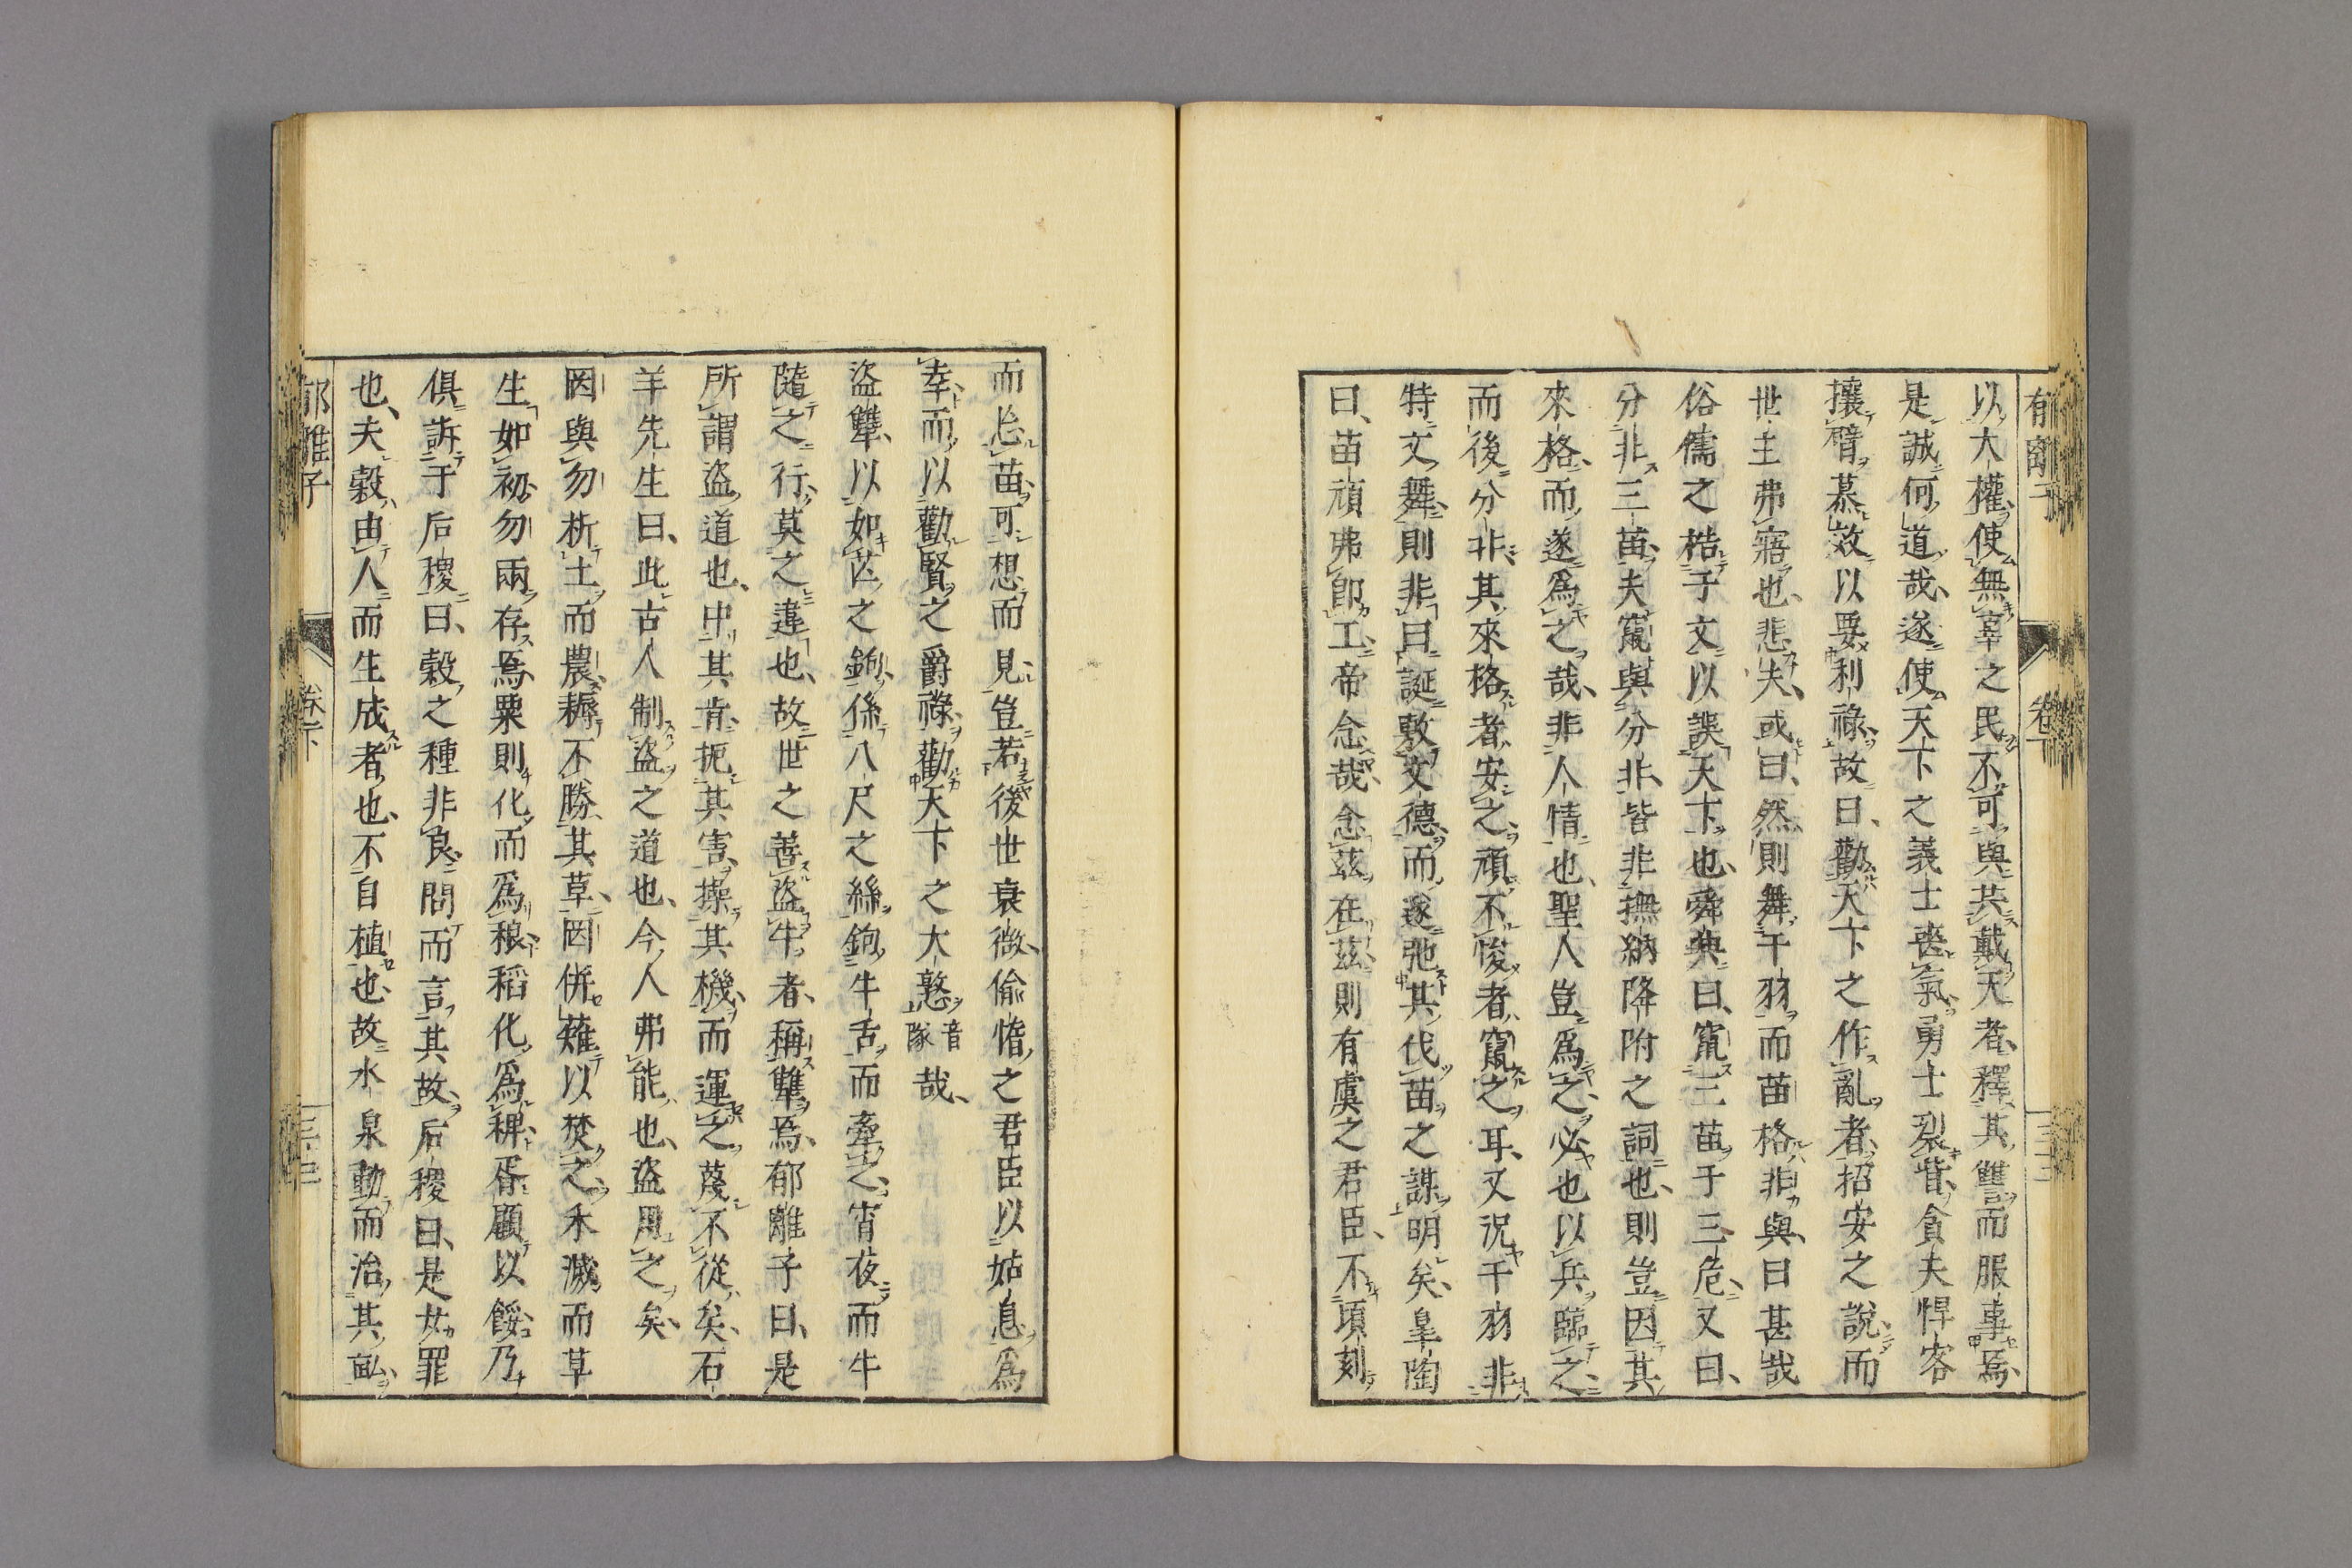 郁離子
卷下
三十三
以大權使無辜之民不可與共戴天者釋其讐而服事焉、
是誠何道哉、遂使天下之義士喪氣、勇士裂眥、貪夫悍客
攘臂慕效以要利祿、故曰、勸天下之作亂者、招安之說、而
世主弗寤也、悲夫、或曰、然則舞干羽而苗格非與、曰甚哉
俗儒之梏于文以誤天下也、舜典曰、竄三苗于三危、又曰、
分非三苗、夫竄與分非、皆非撫納降附之詞也、則豈因其
來格、而遂爲之哉、非人情也、聖人豈爲之、必也以兵臨之、
而後分非、其來格者、安之、頑不悛者、竄之耳、又況干羽非
特文舞、則非曰誕敷文德、而遂弛其伐苗之謀明矣、皐陶
曰、苗頑弗卽工、帝念哉、念茲在茲、則有虞之君臣、不頃刻
而忘苗可想而見、豈若後世衰微、偷惰之君臣以姑息爲
幸、而以勸賢之爵祿、勸天下之大憝音隊哉、
盜犨、以如芒之鉤、係八尺之絲、鉤牛舌而牽之、宵夜而牛
隨之行、莫之違也、故世之善盜牛者、稱犨焉、郁離子曰、是
所謂盜道也、中其肯、扼其害、操其機、而運之、蔑不從矣、石
羊先生曰、此古人制盜之道也、今人弗能也、盜用之矣、
罔與勿析土而農、耨不勝其草、罔併薙以焚之、禾滅而草
生如初、勿兩存焉、粟則化而爲稂、稻化爲稗、胥顧以餒、乃
俱訴于后稷曰、穀之種非良、問而言其故、后稷曰、是女罪
也、夫穀由人而生成者也、不自植也、故水泉動而治其畝、
郁離子
卷下
三十三